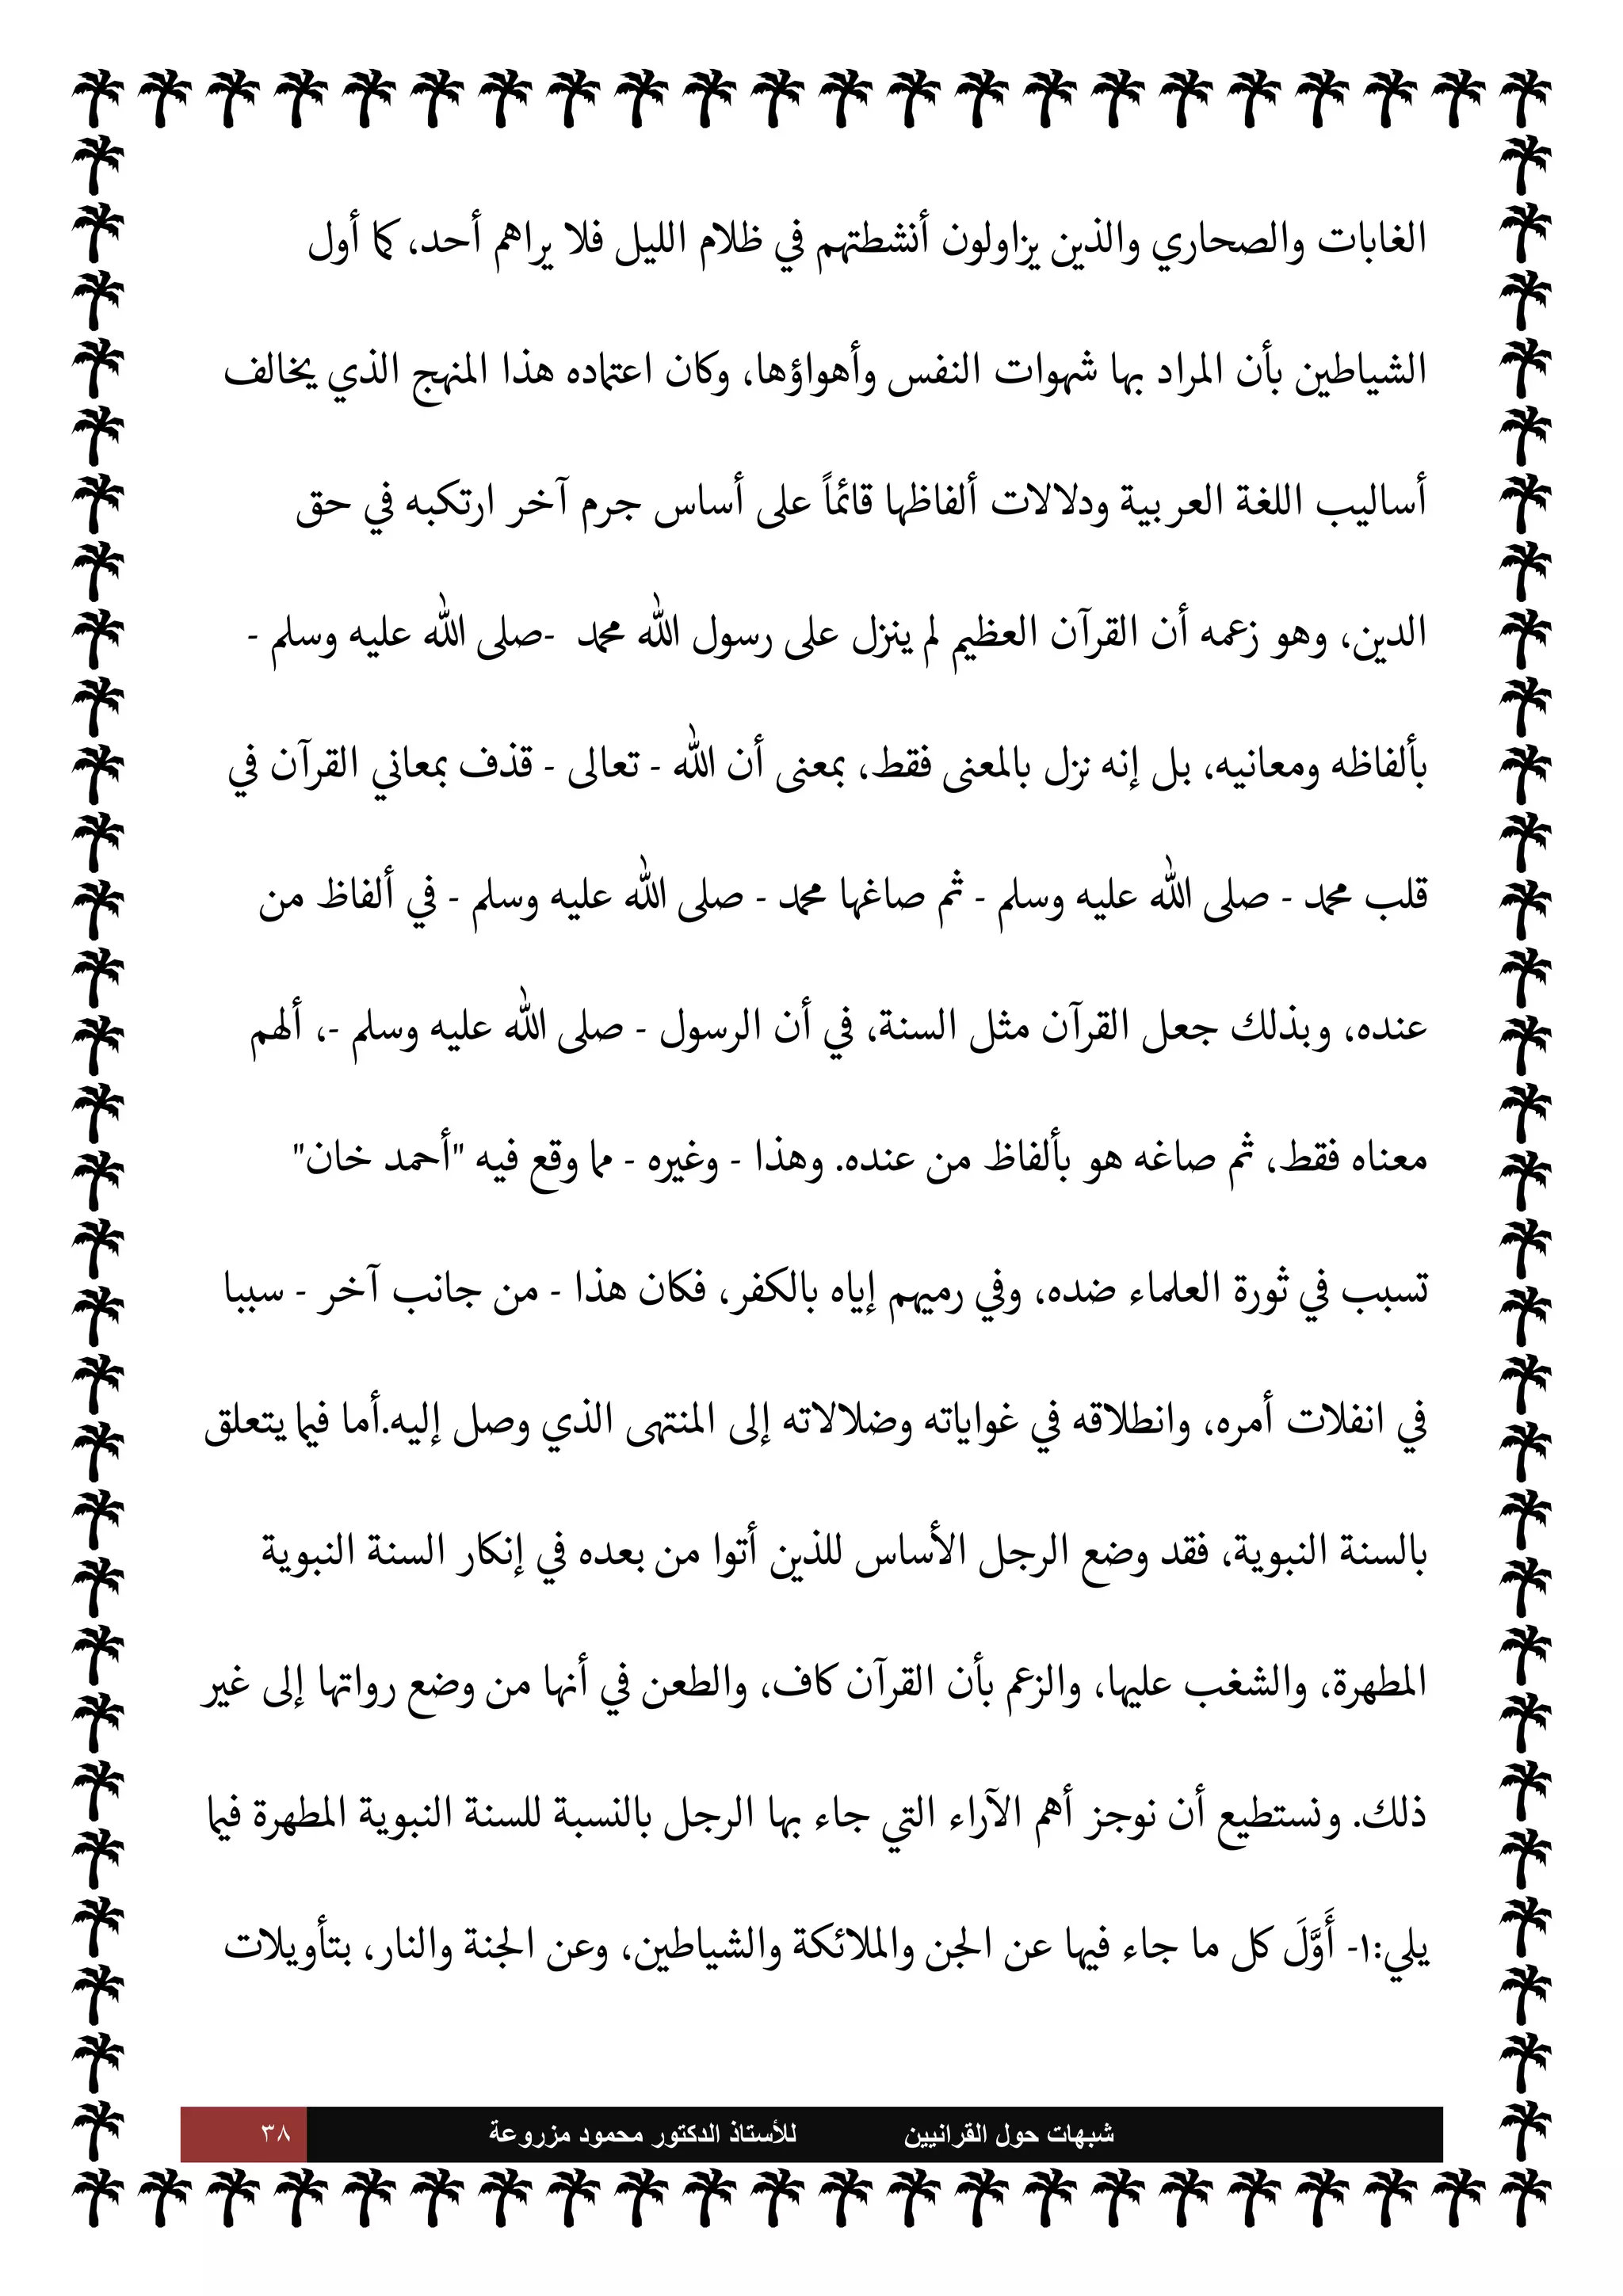 الغابات والصحاري والذين يزاولون أنشطتهم في ظلام الليل فلا يراهم أحد، كما أول
الشياطين بأن المراد بها شهوات النفس وأهواؤها، وكان اعتماده هذا المنهج الذي يخالف
أساليب اللغة العربية ودلالات ألفاظها قائماً على أساس جرم آخر ارتكبه في حق
الدين، وهو زعمه أن القرآن العظيم لم ينزل على رسول الله محمد -صلى الله عليه وسلم -
بألفاظه ومعانيه، بل إنه نزل بالمعنى فقط، بمعنى أن الله - تعالى - قذف بمعاني القرآن في
قلب محمد - صلى الله عليه وسلم - ثم صاغها محمد - صلى الله عليه وسلم - في ألفاظ من
عنده، وبذلك جعل القرآن مثل السنة، في أن الرسول - صلى الله عليه وسلم -، ألهم
معناه فقط، ثم صاغه هو بألفاظ من عنده. وهذا - وغيره - مما وقع فيه "أحمد خان"
تسبب في ثورة العلماء ضده، وفي رميهم إياه بالكفر، فكان هذا - من جانب آخر - سببا
في انفلات أمره، وانطلاقه في غواياته وضلالاته إلى المنتهى الذي وصل إليه.أما فيما يتعلق
بالسنة النبوية، فقد وضع الرجل الأساس للذين أتوا من بعده في إنكار السنة النبوية
المطهرة، والشغب عليها، والزعم بأن القرآن كاف، والطعن في أنها من وضع رواتها إلى غير
ذلك. ونستطيع أن نوجز أهم الآراء التي جاء بها الرجل بالنسبة للسنة النبوية المطهرة فيما
يلي:١- أَوَّلَ كل ما جاء فيها عن الجن والملائكة والشياطين، وعن الجنة والنار، بتأويلات
شبهات حول القرانيين للأستاذ الدكتور محمود مزروعة ٣٨